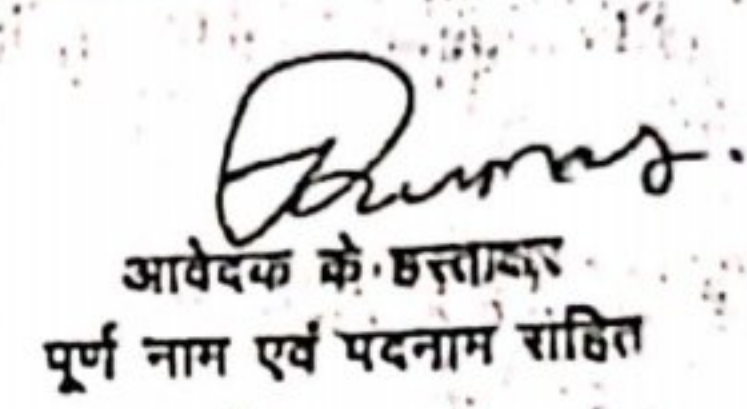 आवेदक के हस्ताक्षर
पूर्ण नाम एवं पदनाम सहित